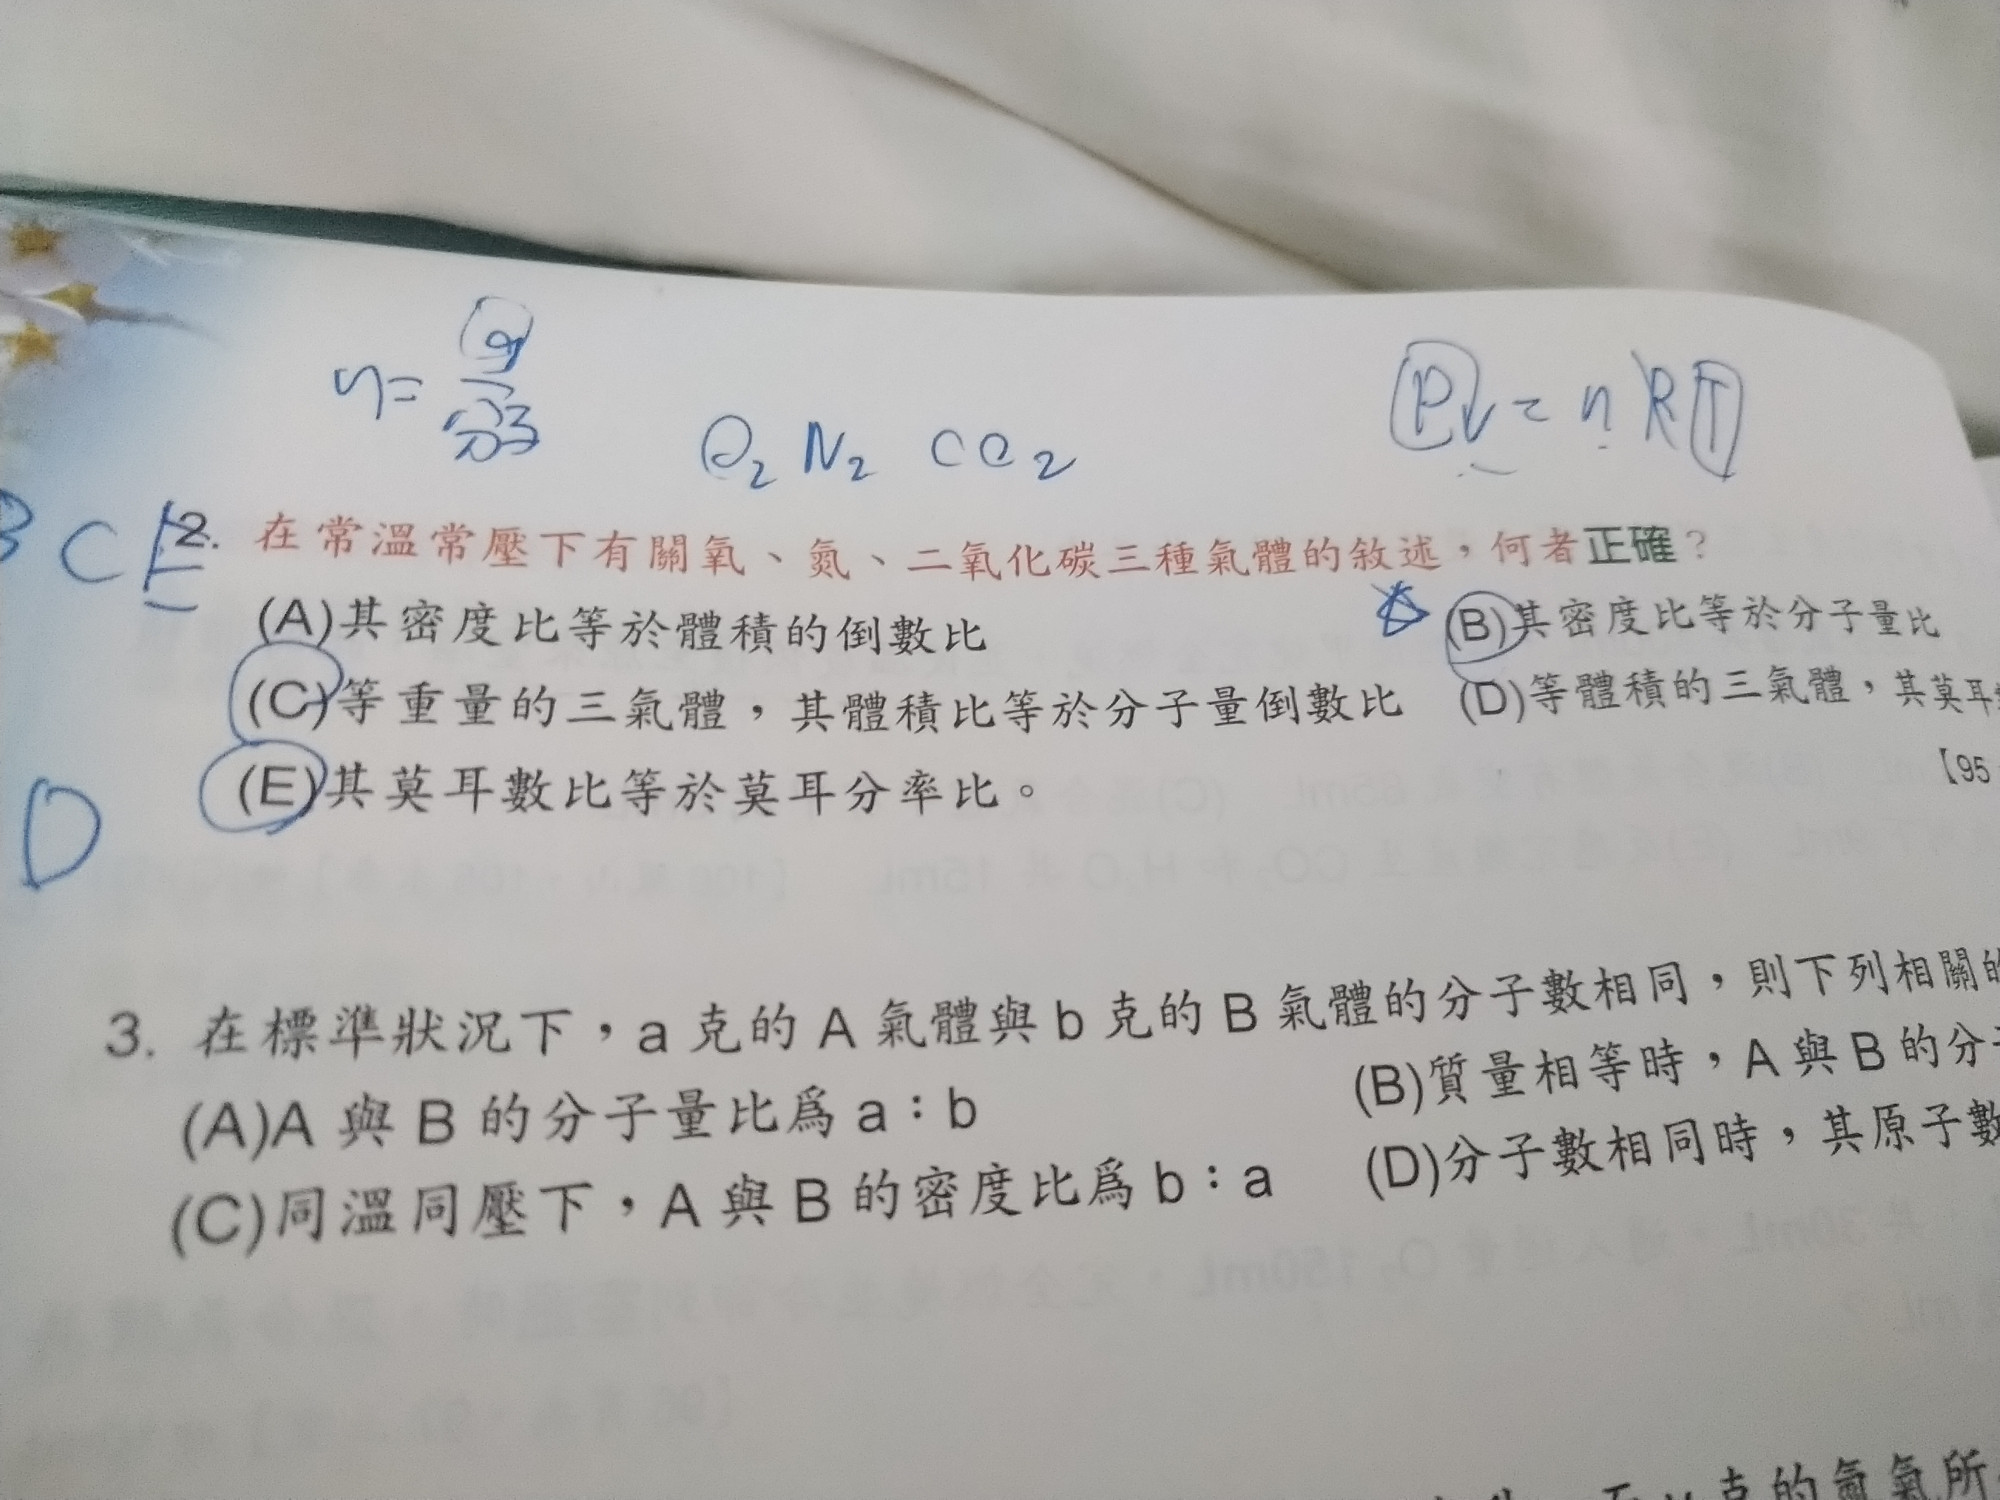 n = 分子
O₂ N₂ CO₂
PV = nRT
B C E
2. 在常溫常壓下有關氧、氮、二氧化碳三種氣體的敘述，何者正確？
(A)其密度比等於體積的倒數比 (B)其密度比等於分子量比
(C)等重量的三氣體，其體積比等於分子量倒數比 (D)等體積的三氣體，其莫耳
(E)其莫耳數比等於莫耳分率比。
【95
D
3. 在標準狀況下，a 克的 A 氣體與 b 克的 B 氣體的分子數相同，則下列相關的
(A)A 與 B 的分子量比爲 a：b (B)質量相等時，A 與 B 的分
(C)同溫同壓下，A 與 B 的密度比爲 b：a (D)分子數相同時，其原子數
克的氣所